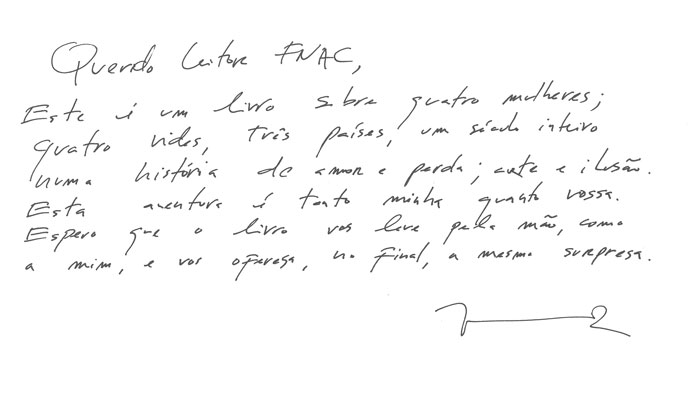 Querido leitor FNAC,
Este é um livro sobre quatro mulheres;
quatro vidas, três países, um século inteiro
numa história de amor e perda; arte e ilusão.
Esta aventura é tanto minha quanto vossa.
Espero que o livro vos leve pela mão, como
a mim, e vos ofereça, no final, a mesma surpresa.